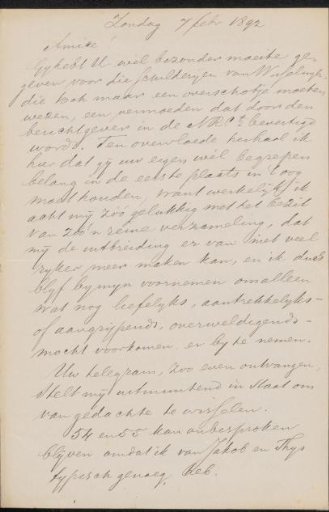 Zondag 7 febr 1892
Amice
Gy hebt U veel bezonder moeite ge-
geven voor die schilderyen van Wisselingh
die toch maar een overschotje moeten
wezen, een vermoeden dat door den
berichtgever in de N.R.Ct bevestigd
wordt. Ten overvloede herhaal ik
hier dat gy uw eigen, wel begrepen
belang in de eerste plaats in 't oog
moet houden, want werkelyk ik
acht my zoo gelukkig met het bezit
van zoo'n reine verzameling, dat
my de uitbreiding er van niet veel
ryker meer maken kan, en ik dus
blyf by myn voornemen om alleen
wat nog liefelyks, aantrekkelyks-
of aangrypends, overweldigends-
mocht voorkomen er by te nemen.
Uw telegram, zoo even ontvangen,
stelt my uitmuntend in staat om
van gedachte te wisselen.
54 en 55 kan onbesproken
blyven omdat ik van Jakob en Thys
typisch genoeg heb.